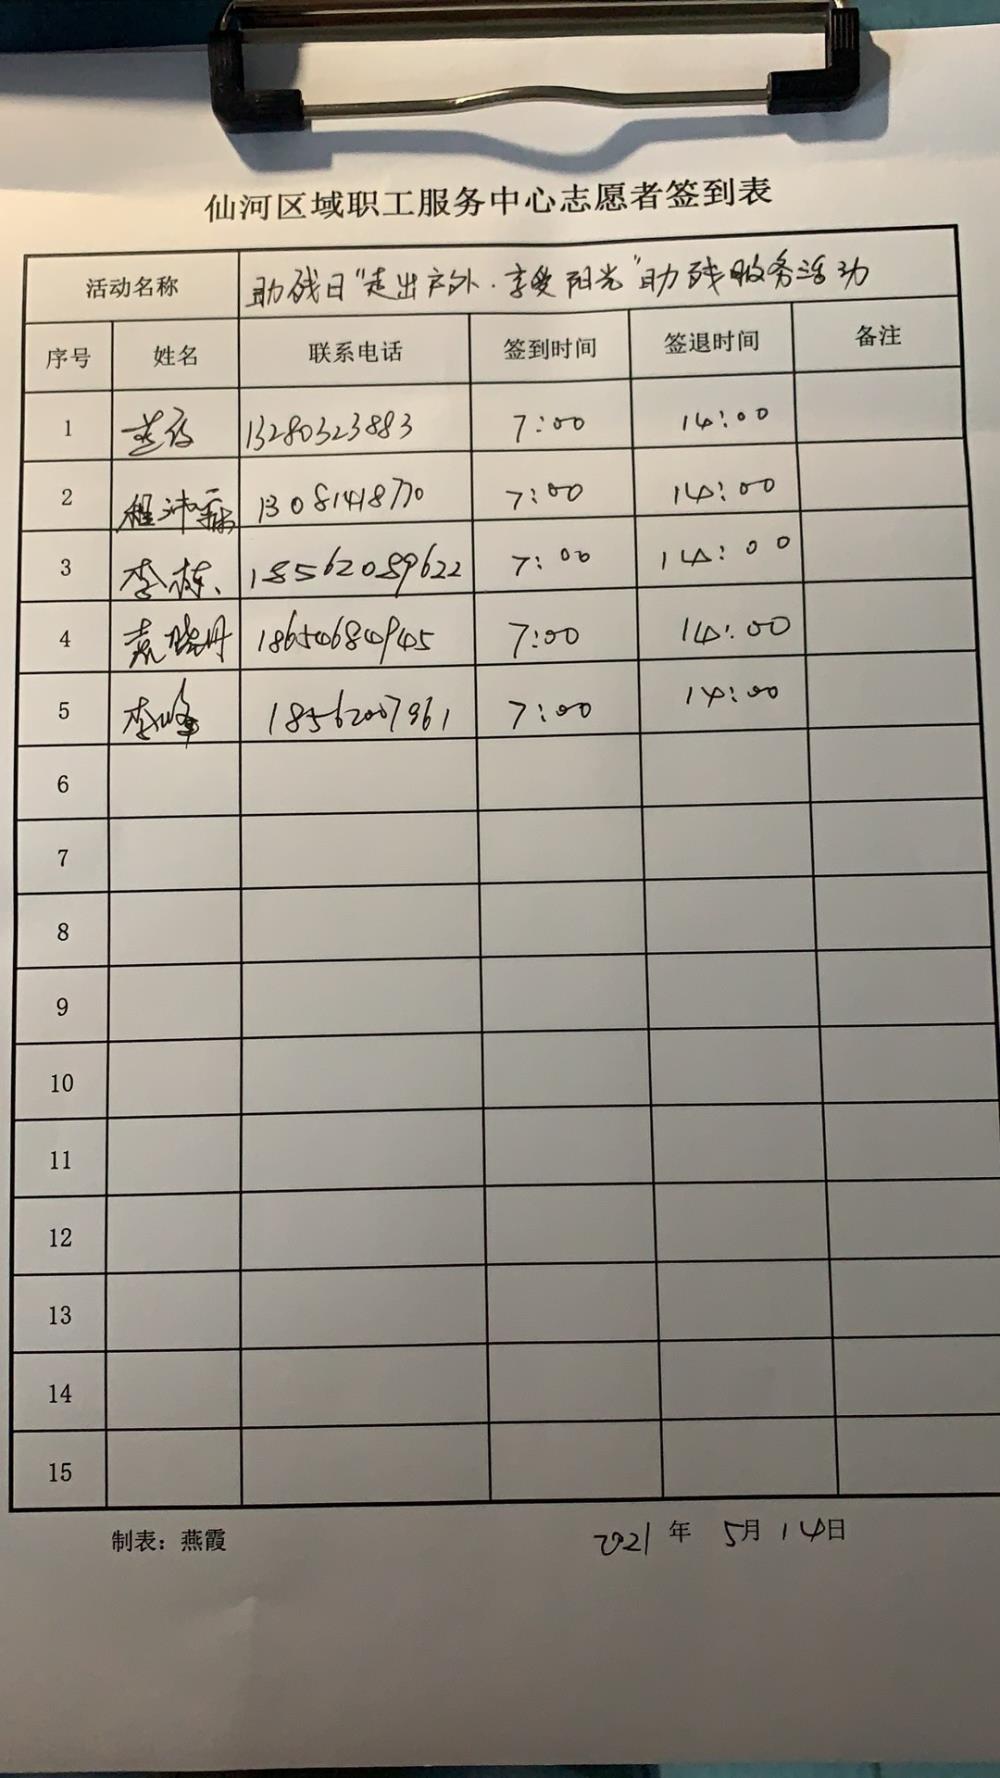 仙河区域职工服务中心志愿者签到表
活动名称 助残日“走出户外·享受阳光”助残服务活动
序号 姓名 联系电话 签到时间 签退时间 备注
1 13280323883 7:00 14:00
2 13081418770 7:00 14:00
3 李栋 18562089622 7:00 14:00
4 袁晓丹 18654684945 7:00 14:00
5 李峰 18562007961 7:00 14:00
6
7
8
9
10
11
12
13
14
15
制表：燕霞 2021 年 5月 14日